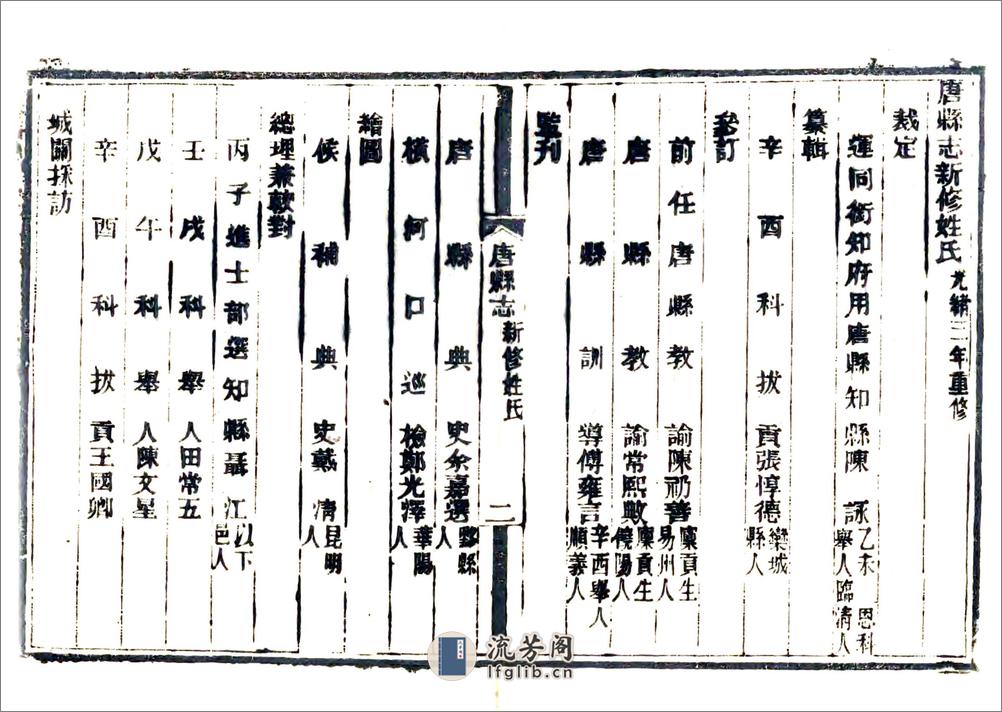 唐縣志新修姓氏 光緒三年重修
裁定
運同銜知府用唐縣知縣陳詠 乙未恩科舉人臨清人
纂輯
辛酉科拔貢張惇德 欒城縣人
參訂
前任唐縣教諭陳礽善 廩貢生易州人
唐縣教諭常熙敷 廩貢生饒陽人
唐縣訓導傅雍言 辛酉舉人順義人
監刊
唐縣志 新修姓氏 二
唐縣典史余嘉選 黟縣人
橫河口巡檢鄭光澤 華陽人
繪圖
候補典史戴清 昆明人
總理兼校對
丙子進士部選知縣聶江 以下邑人
壬戌科舉人田常五
戊午科舉人陳文星
辛酉科拔貢王國卿
城關採訪
流芳阁
lfglib.cn